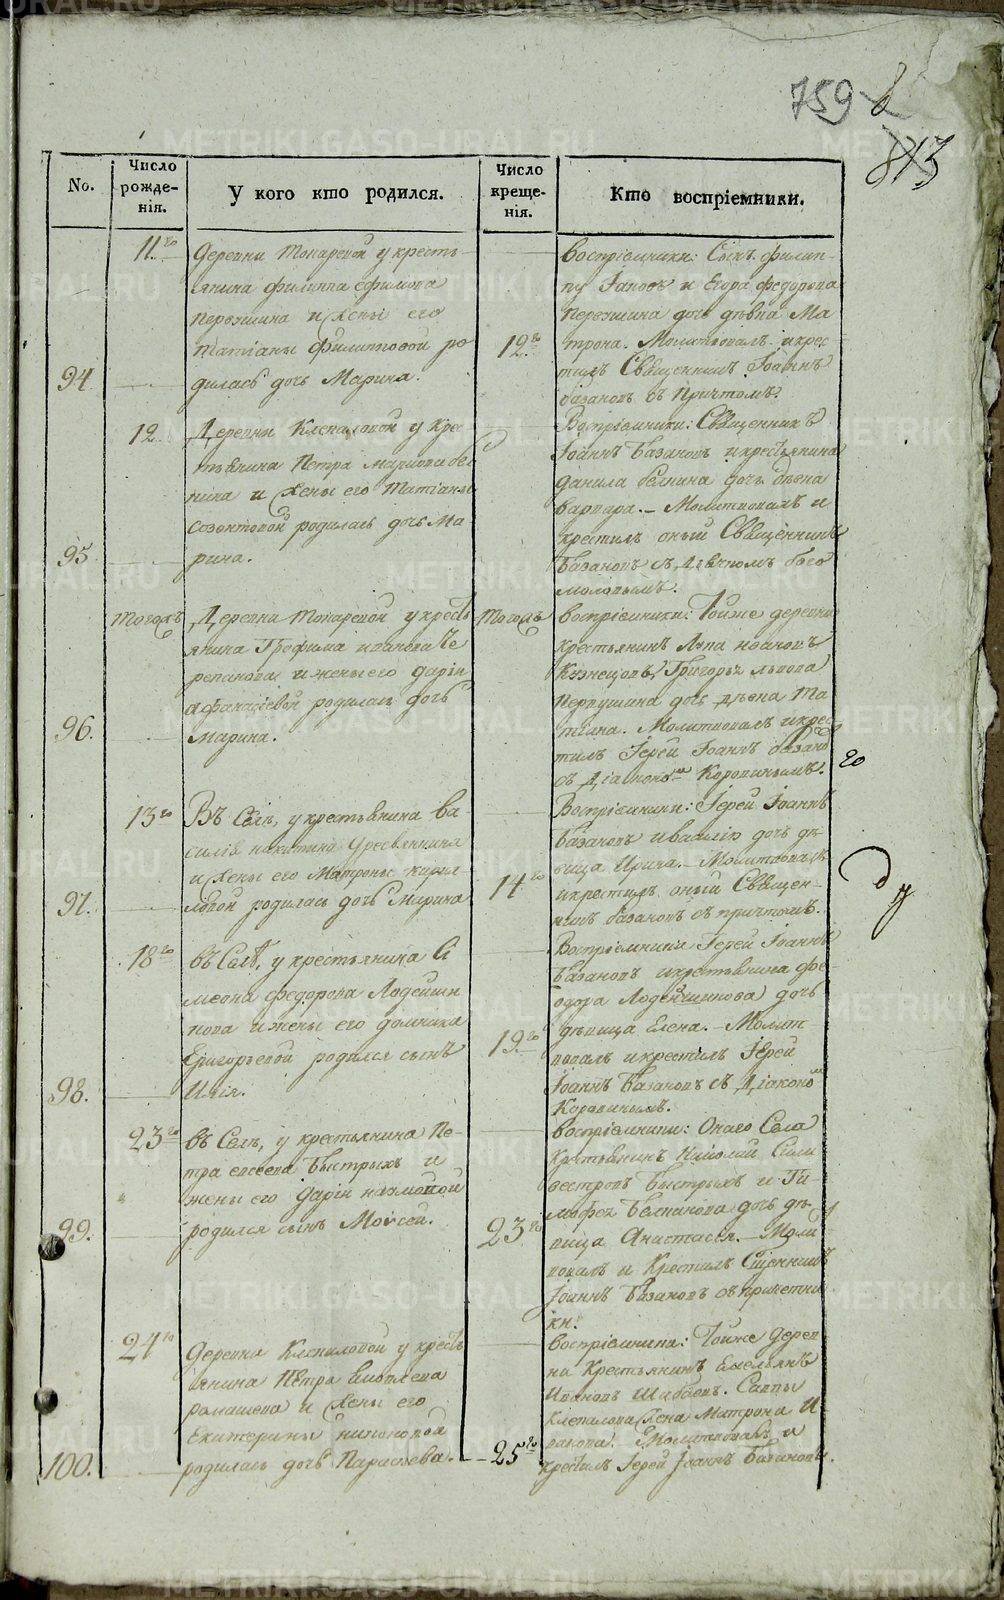 759
813
No.
Число рожде-нія.
У кого кто родился.
Число креще-нія.
Кто воспріемники.
94
11го
Деревни Токаревой у кресть-
янина Филиппа Ефимова
Первушина и жены его
Татіаны Филипповой ро-
дилась дочь Марина.
12го
Воспріемники: Сынъ Филип-
пу и Егора Федорова
Первушина дочь дѣвка Ма
трона. Молитвовалъ и крес-
тилъ Священникъ Іоаннъ
Базановъ съ Причтомъ.
95
12
Деревни Клепаловой у кре
стьянина Петра
и жены его Татіаны
Созонтовой родилась дочь Ма
рина.
Воспріемники: Священникъ
Іоаннъ Базановъ и крестьянина
Данила дочь дѣвка
Варвара. – Молитвовалъ и
крестилъ оный Священникъ
Базановъ съ Дьячкомъ Бого
моловымъ.
96.
Тогожъ
Деревни Токаревой у кресть
янина Трофима Иванова Че
репанова и жены его Даріи
Афанасіевой родилась дочь
Марина.
Тогожъ
Воспріемники: Тойже деревни
крестьянинъ Иванов
Кузнецовъ, Григорья Львова
Первушина дочь дѣвка Та
тіана. Молитвовалъ и крес
тилъ Іерей Іоаннъ Базано
съ Діакономъ Коровинымъ.
го
97.
13го
Въ Селѣ, у крестьянина Ва
силія Никитина
и жены его Матроны Кирил-
ловой родилась дочь Марина
14го
Воспріемники: Іерей Іоаннъ
Базановъ и Василію дочь дѣ
вица Ирина. – Молитвовалъ
и крестилъ оный Священ-
никъ Базановъ съ причтомъ.
98.
18го
въ Селѣ, у крестьянина Си
меона Федорова Лодейщи
кова и жены его Домники
Григорьевой родился сынъ
Илія.
19го
Воспріемники Іерей Іоаннъ
Базановъ и крестьянина Фе
одора Лодейщикова дочь
дѣвица Елена. – Молит
вовалъ и крестилъ Іерей
Іоаннъ Базановъ съ Діакономъ
Коровинымъ.
99.
23го
въ Селѣ, у крестьянина Пе-
тра Елисеева Быстрыхъ и
жены его Даріи Наумовой
родился сынъ Моисей.
23го
Воспріемники: Онаго Села
крестьянинъ Николай Силь
вестровъ Быстрыхъ и Ти
мофея дочь дѣ
вица Анастасія. – Моли
вовалъ и Крестилъ Священникъ
Іоаннъ Базановъ съ причетни
ки.
100.
24го
Деревни Клепаловой у кресть
янина Петра
Ромашева и жены его
Екатерины Никоновой
родилась дочь Параскева.
25го
Воспріемники: Тойже Дерев
ни Крестьянинъ Емельянъ
Ивановъ Савы
Клепалова жена Матрона И
ванова. Молитвовалъ и
крестилъ Іерей Іоаннъ Базановъ.